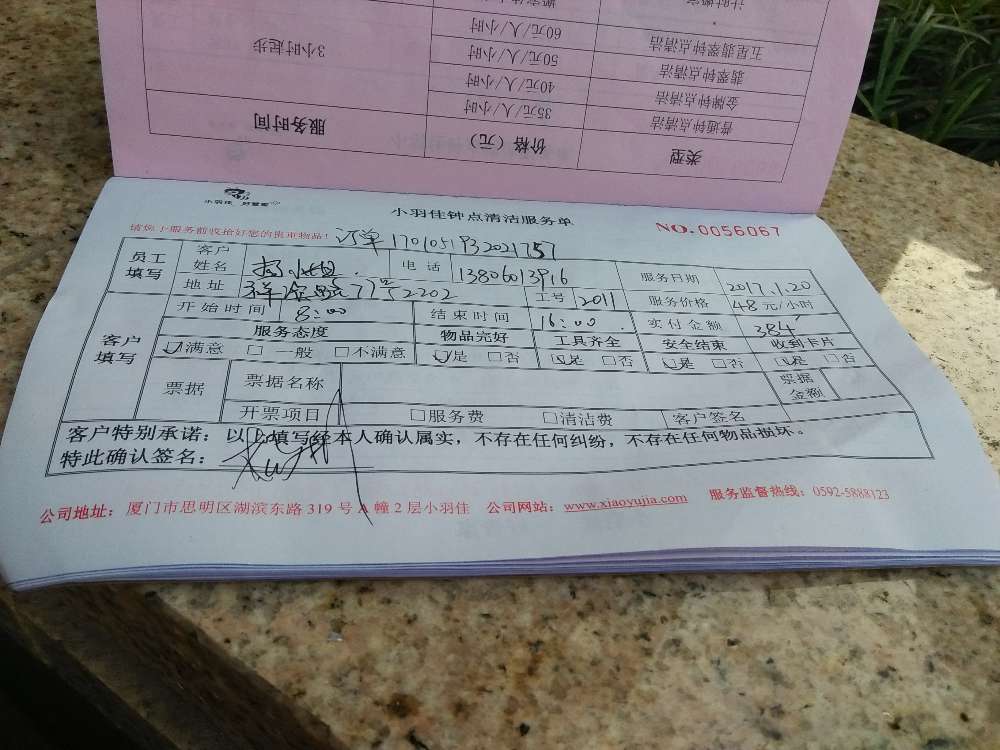 计时搬家
五星翡翠钟点清洁 60元/人/小时
翡翠钟点清洁 50元/人/小时 3小时起步
金牌钟点清洁 40元/人/小时
普通钟点清洁 35元/人/小时
类型 价格（元） 服务时间
小羽佳 好管家
小羽佳钟点清洁服务单
请您于服务前收拾好您的贵重物品！ 订单 NO.0056067
员工填写 客户姓名 杨小姐 电话 13806013916 服务日期 2017.1.20
地址 77号2202 工号 2011 服务价格 48元/小时
客户填写 开始时间 8:00 结束时间 16:00 实付金额 384
服务态度 物品完好 工具齐全 安全结束 收到卡片
☑满意 □一般 □不满意 ☑是 □否 ☑是 □否 ☑是 □否 ☑是 □否
票据 票据名称 票据金额
开票项目 □服务费 □清洁费 客户签名
客户特别承诺：以上填写经本人确认属实，不存在任何纠纷，不存在任何物品损坏。
特此确认签名：
公司地址：厦门市思明区湖滨东路319号A幢2层小羽佳 公司网站：www.xiaoyujia.com 服务监督热线：0592-5888123